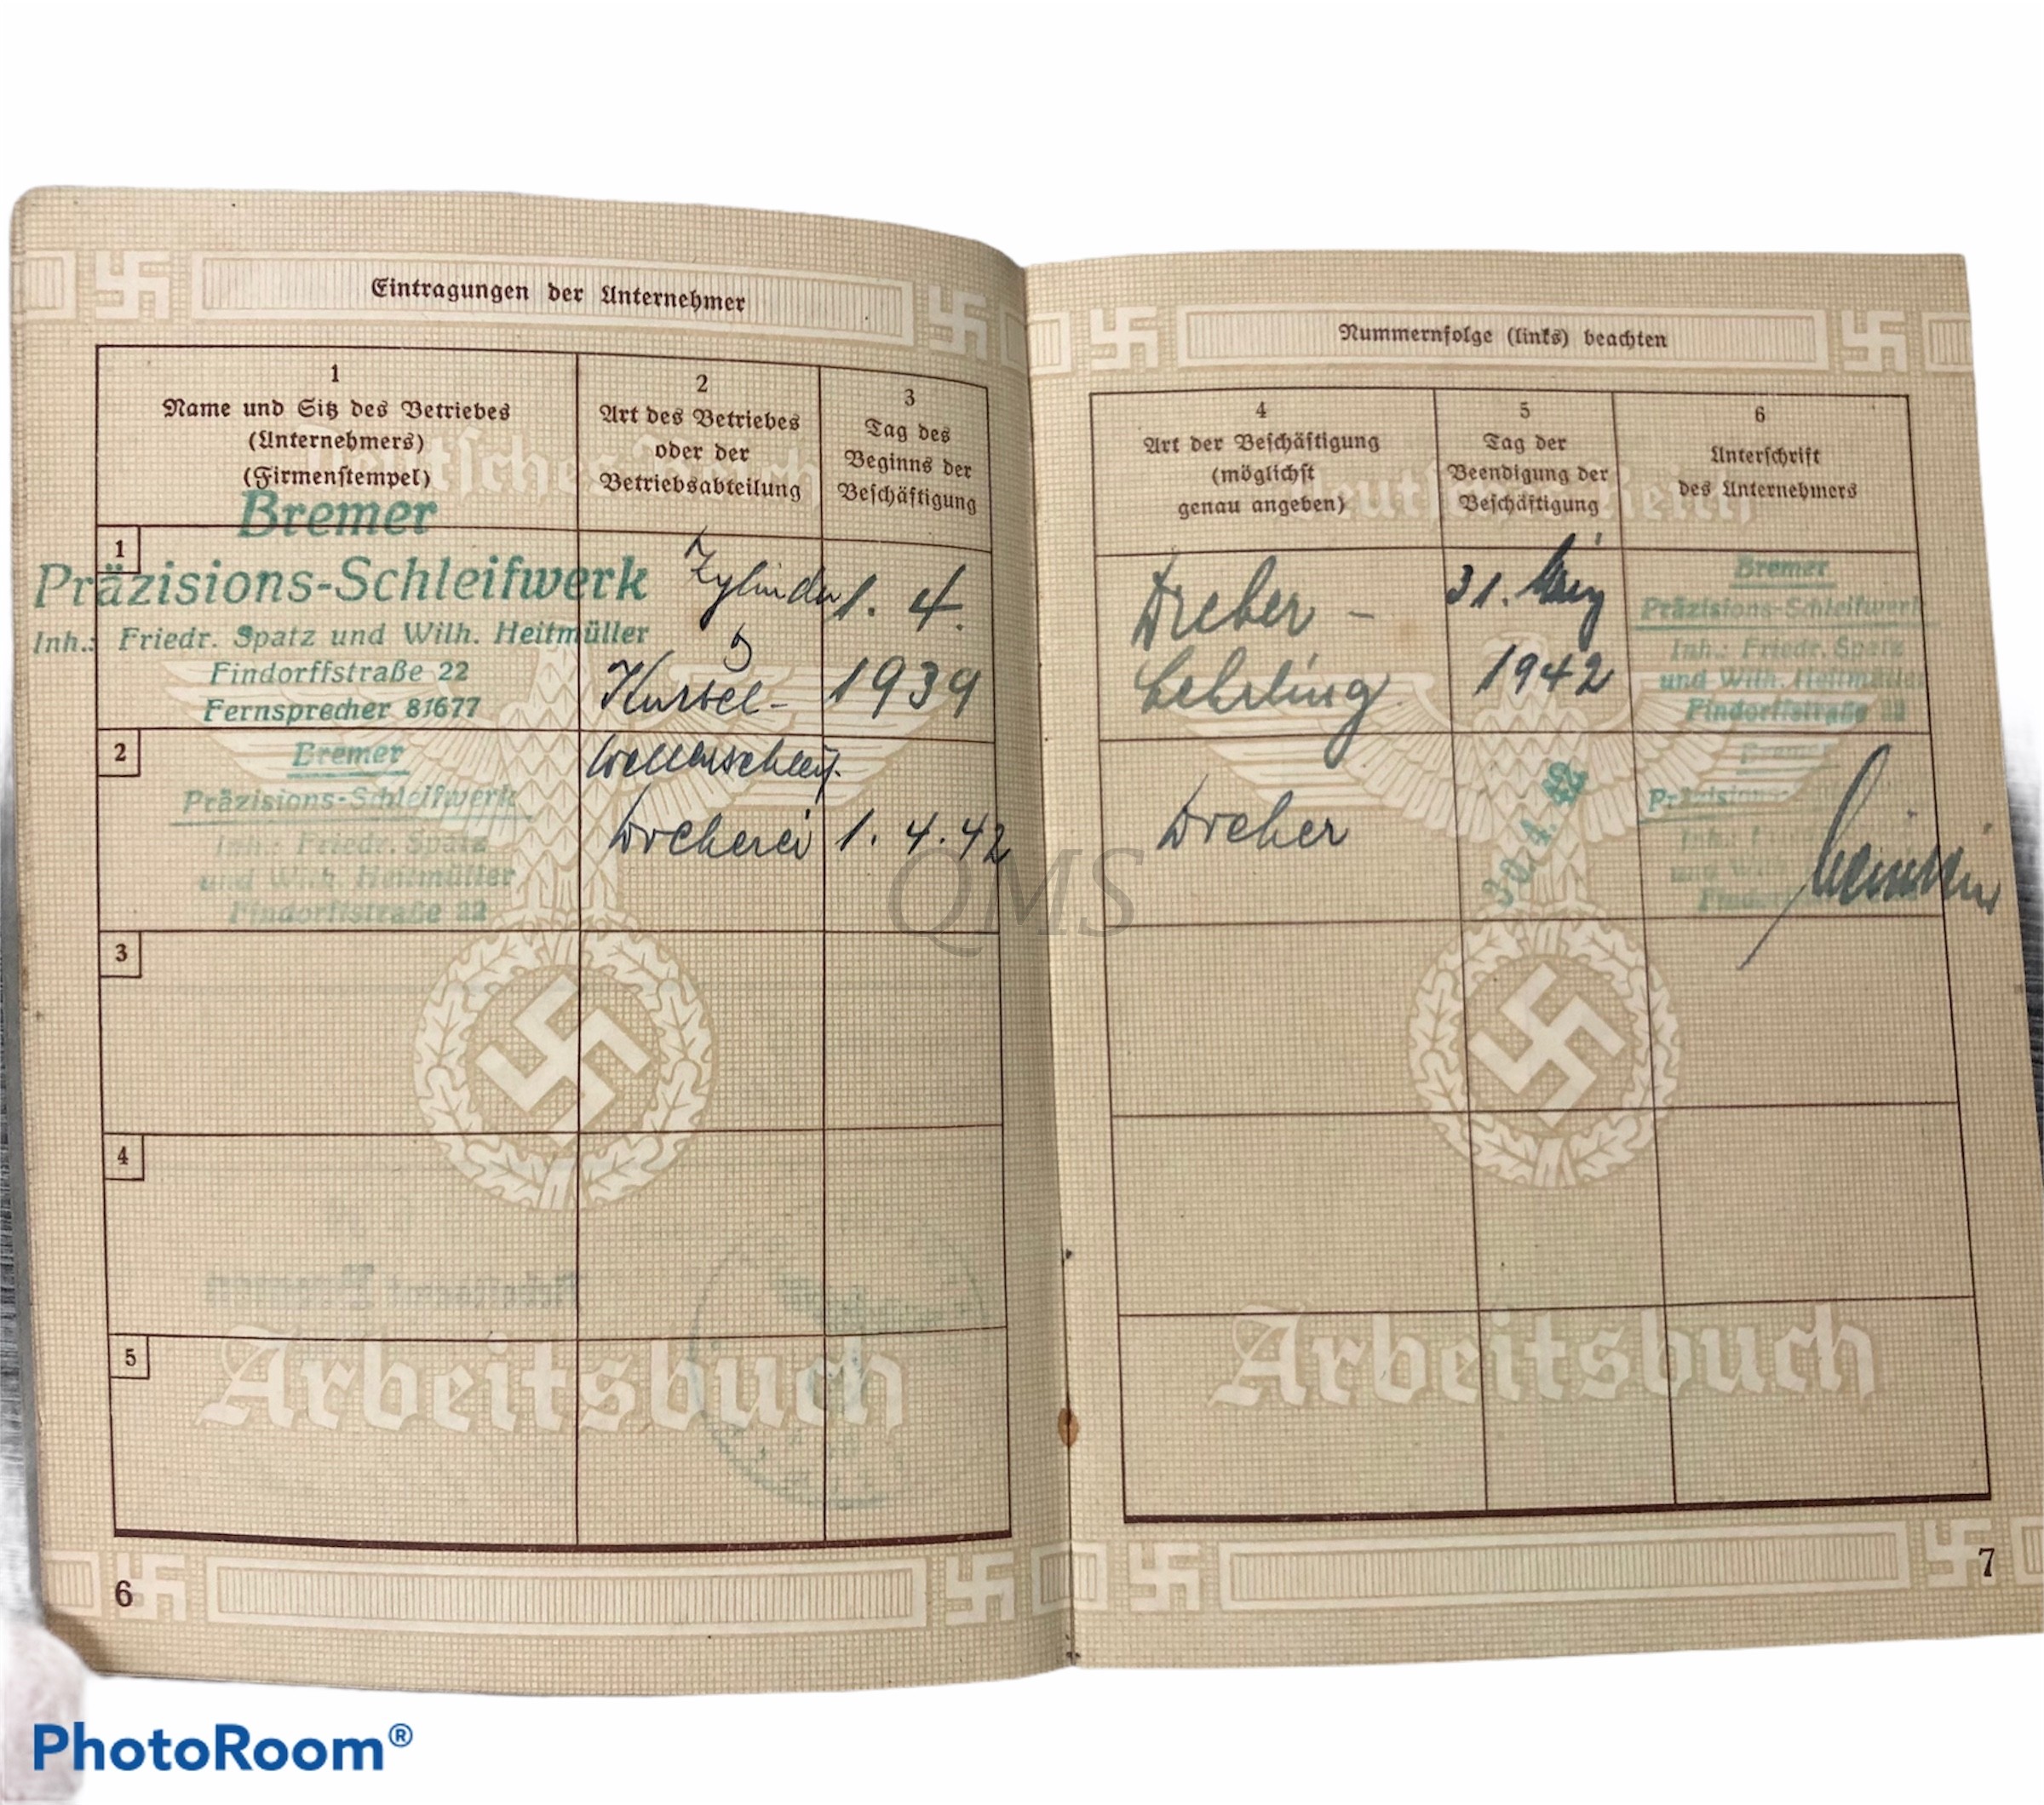 Eintragungen der Unternehmer
1
Name und Sitz des Betriebes
(Unternehmers)
(Firmenstempel)
2
Art des Betriebes
oder der
Betriebsabteilung
3
Tag des
Beginns der
Beschäftigung
1
Bremer
Präzisions-Schleifwerk
Inh.: Friedr. Spatz und Wilh. Heitmüller
Findorffstraße 22
Fernsprecher 81677
Zylinder
Kurbel-
wellenschleif.
1. 4.
1939
2
Bremer
Präzisions-Schleifwerk
Inh.: Friedr. Spatz
und Wilh. Heitmüller
Findorffstraße 22
Dreherei
1. 4. 42
3
4
5
Deutsches Reich
Arbeitsbuch
6
Nummernfolge (links) beachten
4
Art der Beschäftigung
(möglichst
genau angeben)
5
Tag der
Beendigung der
Beschäftigung
6
Unterschrift
des Unternehmers
Dreher -
Lehrling
31. März
1942
Bremer
Präzisions-Schleifwerk
Inh.: Friedr. Spatz
und Wilh. Heitmüller
Findorffstraße 22
Dreher
30. 4. 42
Bremer
Präzisions-
Deutsches Reich
Arbeitsbuch
7
QMS
PhotoRoom®